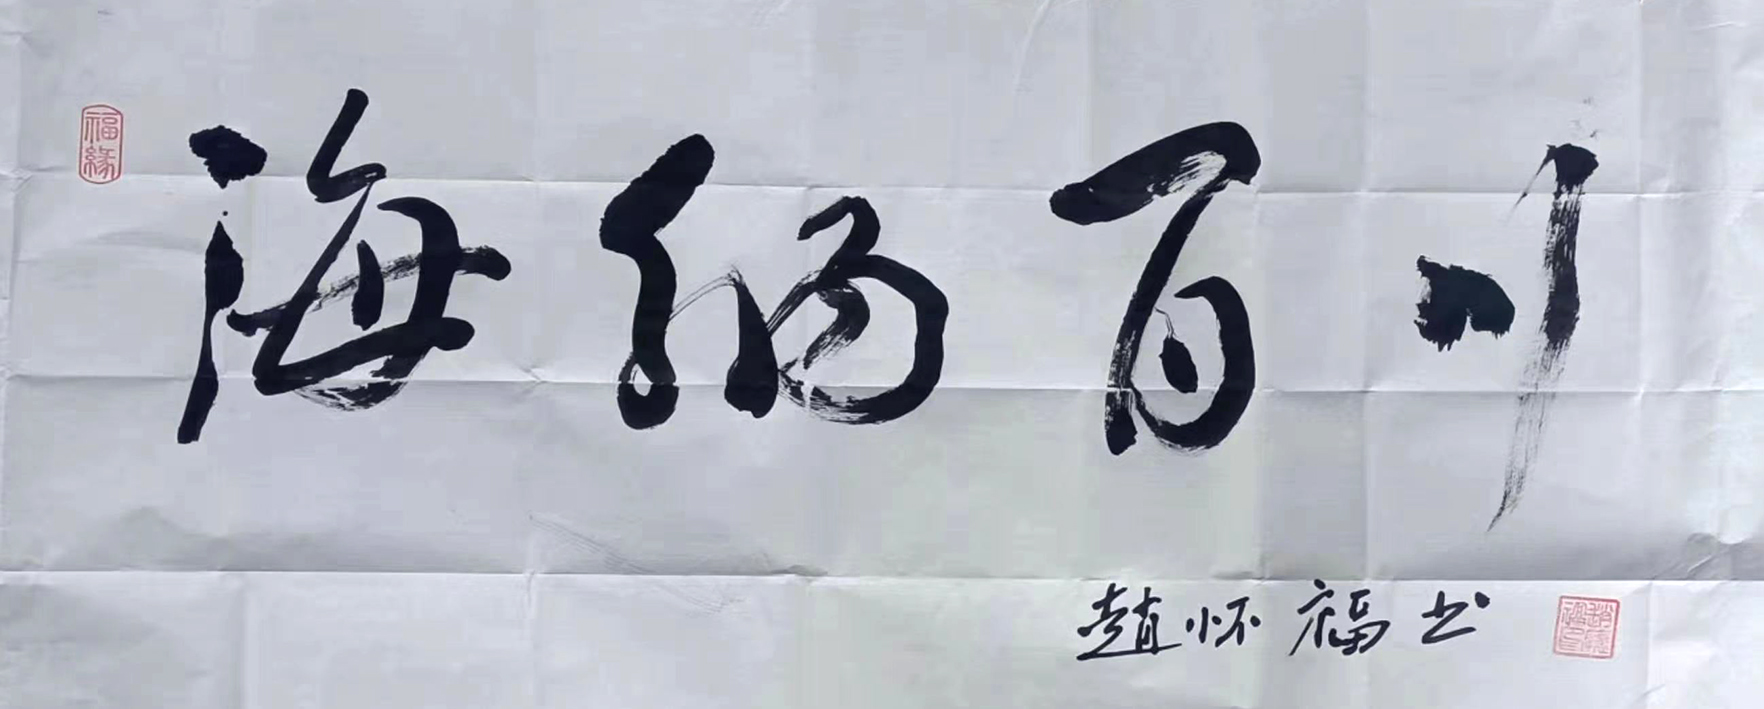 海纳百川
赵怀福书
福缘